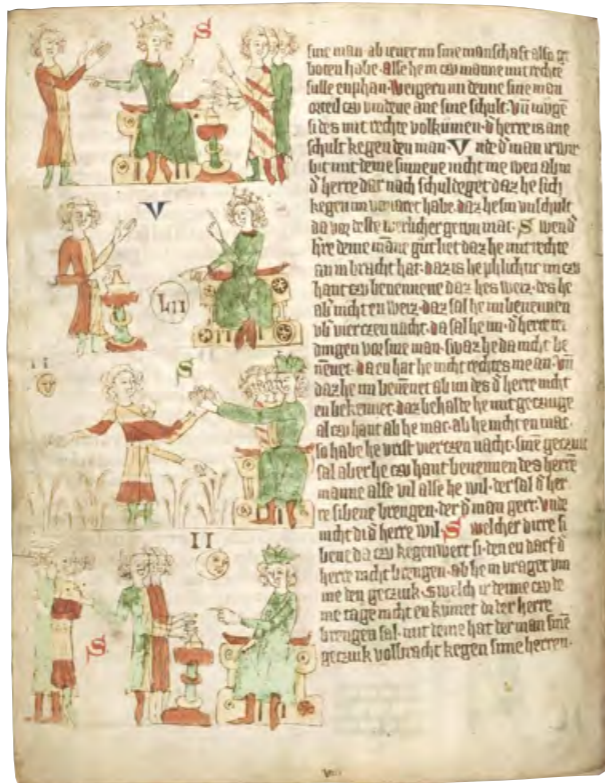 S
V
LII
II
S
II
S
sine man· ab iener im sine manschaft also ge
boten habe· alse he im czu manne mit rechte
sulle enphan· Weigern im denne sine man
orteil czu vindene ane sine schult· vn mogē
si des mit rechte volkumen· d' herre is ane
schult kegen den man· V nde d' man
bit mit deme nicht me wen ab in
d' herre dar nach schuldeget daz he sich
kegen im habe· daz he sin vnschult
da vor deste werlicher getun mac· S wen d'
h're deme māne gut liet daz he mit rechte
an in bracht hat· daz is he phlichtic im czu
hant czu benennene daz hes weiz· des he
ab' nicht en weiz· daz sal he im benennen
vb' vierczen nacht· da sal he im· d' herre te
dingen vor sine man· swaz he da nicht be
nennet· da en hat he nicht rechtes me an· vn
daz he im benennet ab im des d' herre nicht
en bekennet· daz behalde he mit geczuge
al czu hant ab he mac· ab he nicht en mac·
so habe he vrist vierczen nacht· sine geczuge
sal aber he czu hant benennen des herrē
manne alse vil alse he wil· der sal d' her
re sibene brengen· der d' man gert· vnde
nicht di d' herre wil S welcher dirre si
bene da czu kegenwert si· den en darf d'
herre nicht brengen· ab he in vraget vm
me den geczuk· S welch ir denne czu de
me tage nicht en kumet da der herre
brengen sal· mit deme hat der man sinē
geczuk volbracht kegen sime herren·